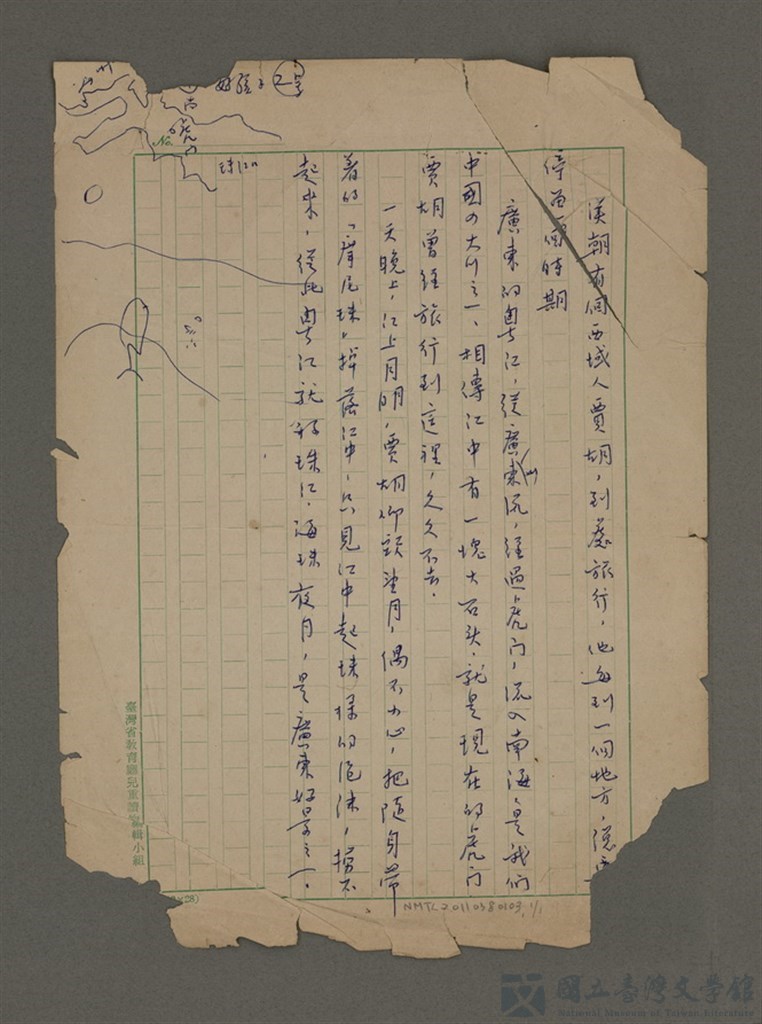 好孩子 乙等
廣州
虎門
珠江口
No.
漢朝有個西域人賈胡，到處旅行，他每到一個地方，總
停留一個時期
廣東的粵江，從廣州流，經過虎門，流入南海，是我們
中國の大川之一、相傳江中有一塊大石头，就是現在的虎門
賈胡曾經旅行到這裡，久久不去．
一天晚上，江上月明，賈胡仰頭望月，偶不小心，把隨身帶
着的「摩尼珠」掉落江中，只見江中起珠樣的泡沫，撈不
起來，從此粵江就名珠江．海珠夜月，是廣東好景之一．
臺灣省教育廳兒童讀物編輯小組
NMTL20110380103 1/1
國立臺灣文學館
National Museum of Taiwan Literature